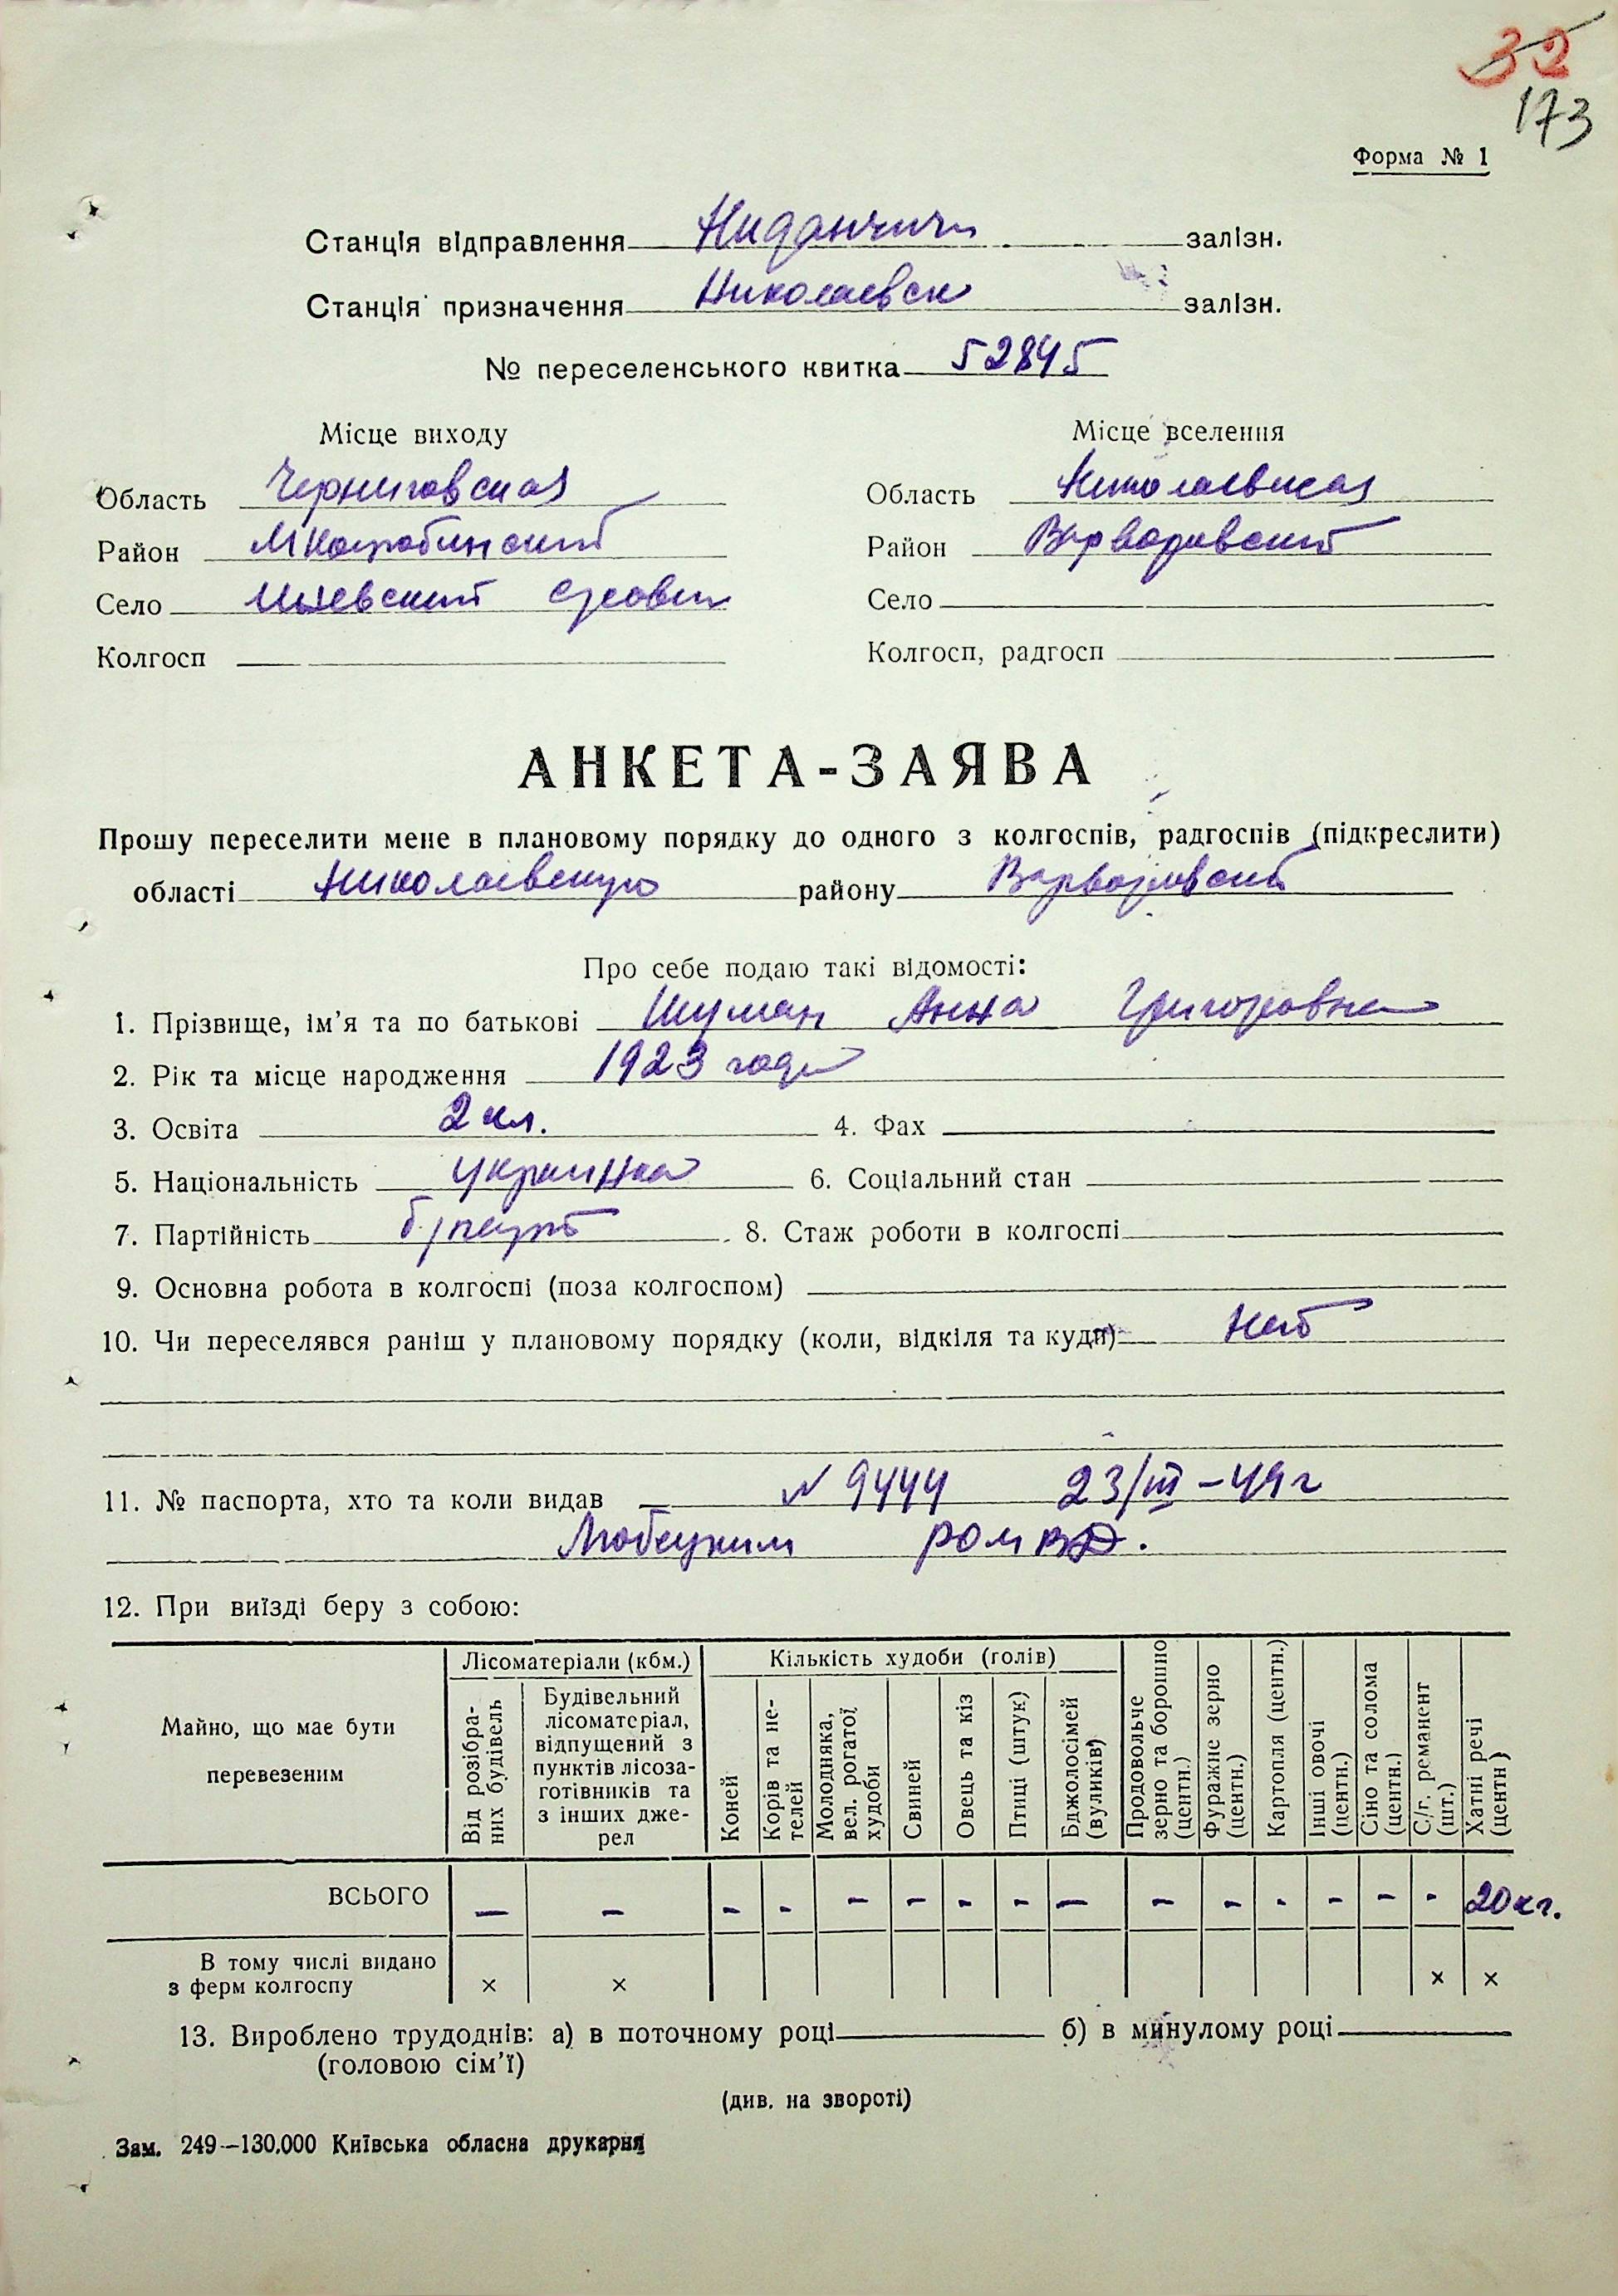 32
173
Форма № 1
Станція відправлення Ниданчичи залізн.
Станція призначення Николаевск залізн.
№ переселенського квитка 52845
Місце виходу Місце вселення
Область Черниговская Область Николаевская
Район Район Варваровский
Село Село
Колгосп Колгосп, радгосп
АНКЕТА-ЗАЯВА
Прошу переселити мене в плановому порядку до одного з колгоспів, радгоспів (підкреслити)
області Николаевскую району Варваровский
Про себе подаю такі відомості:
1. Прізвище, ім’я та по батькові Шуман Анна Григоровна
2. Рік та місце народження 1923 года
3. Освіта 2 кл. 4. Фах
5. Національність украинка 6. Соціальний стан
7. Партійність б/парт 8. Стаж роботи в колгоспі
9. Основна робота в колгоспі (поза колгоспом)
10. Чи переселявся раніш у плановому порядку (коли, відкіля та куди) Нет
11. № паспорта, хто та коли видав № 9444 23/III – 49 г
Любецким РОМВД.
12. При виїзді беру з собою:
Майно, що має бути перевезеним
Лісоматеріали (кбм.)
Від розібраних будівель
Будівельний лісоматеріал, відпущений з пунктів лісоза-готівників та з інших дже-рел
Кількість худоби (голів)
Коней
Корів та не-телей
Молодняка, вел. рогатої худоби
Свиней
Овець та кіз
Птиці (штук)
Бджолосімей (вуликів)
Продовольче зерно та борошно (центн.)
Фуражне зерно (центн.)
Картопля (центн.)
Інші овочі (центн.)
Сіно та солома (центн.)
С/г. реманент (шт.)
Хатні речі (центн)
ВСЬОГО — — - - - - - - — - - - - - - 20 кг.
В тому числі видано
з ферм колгоспу × × × ×
13. Вироблено трудоднів: а) в поточному році б) в минулому році
(головою сім’ї)
(див. на звороті)
Зам. 249—130.000 Київська обласна друкарня